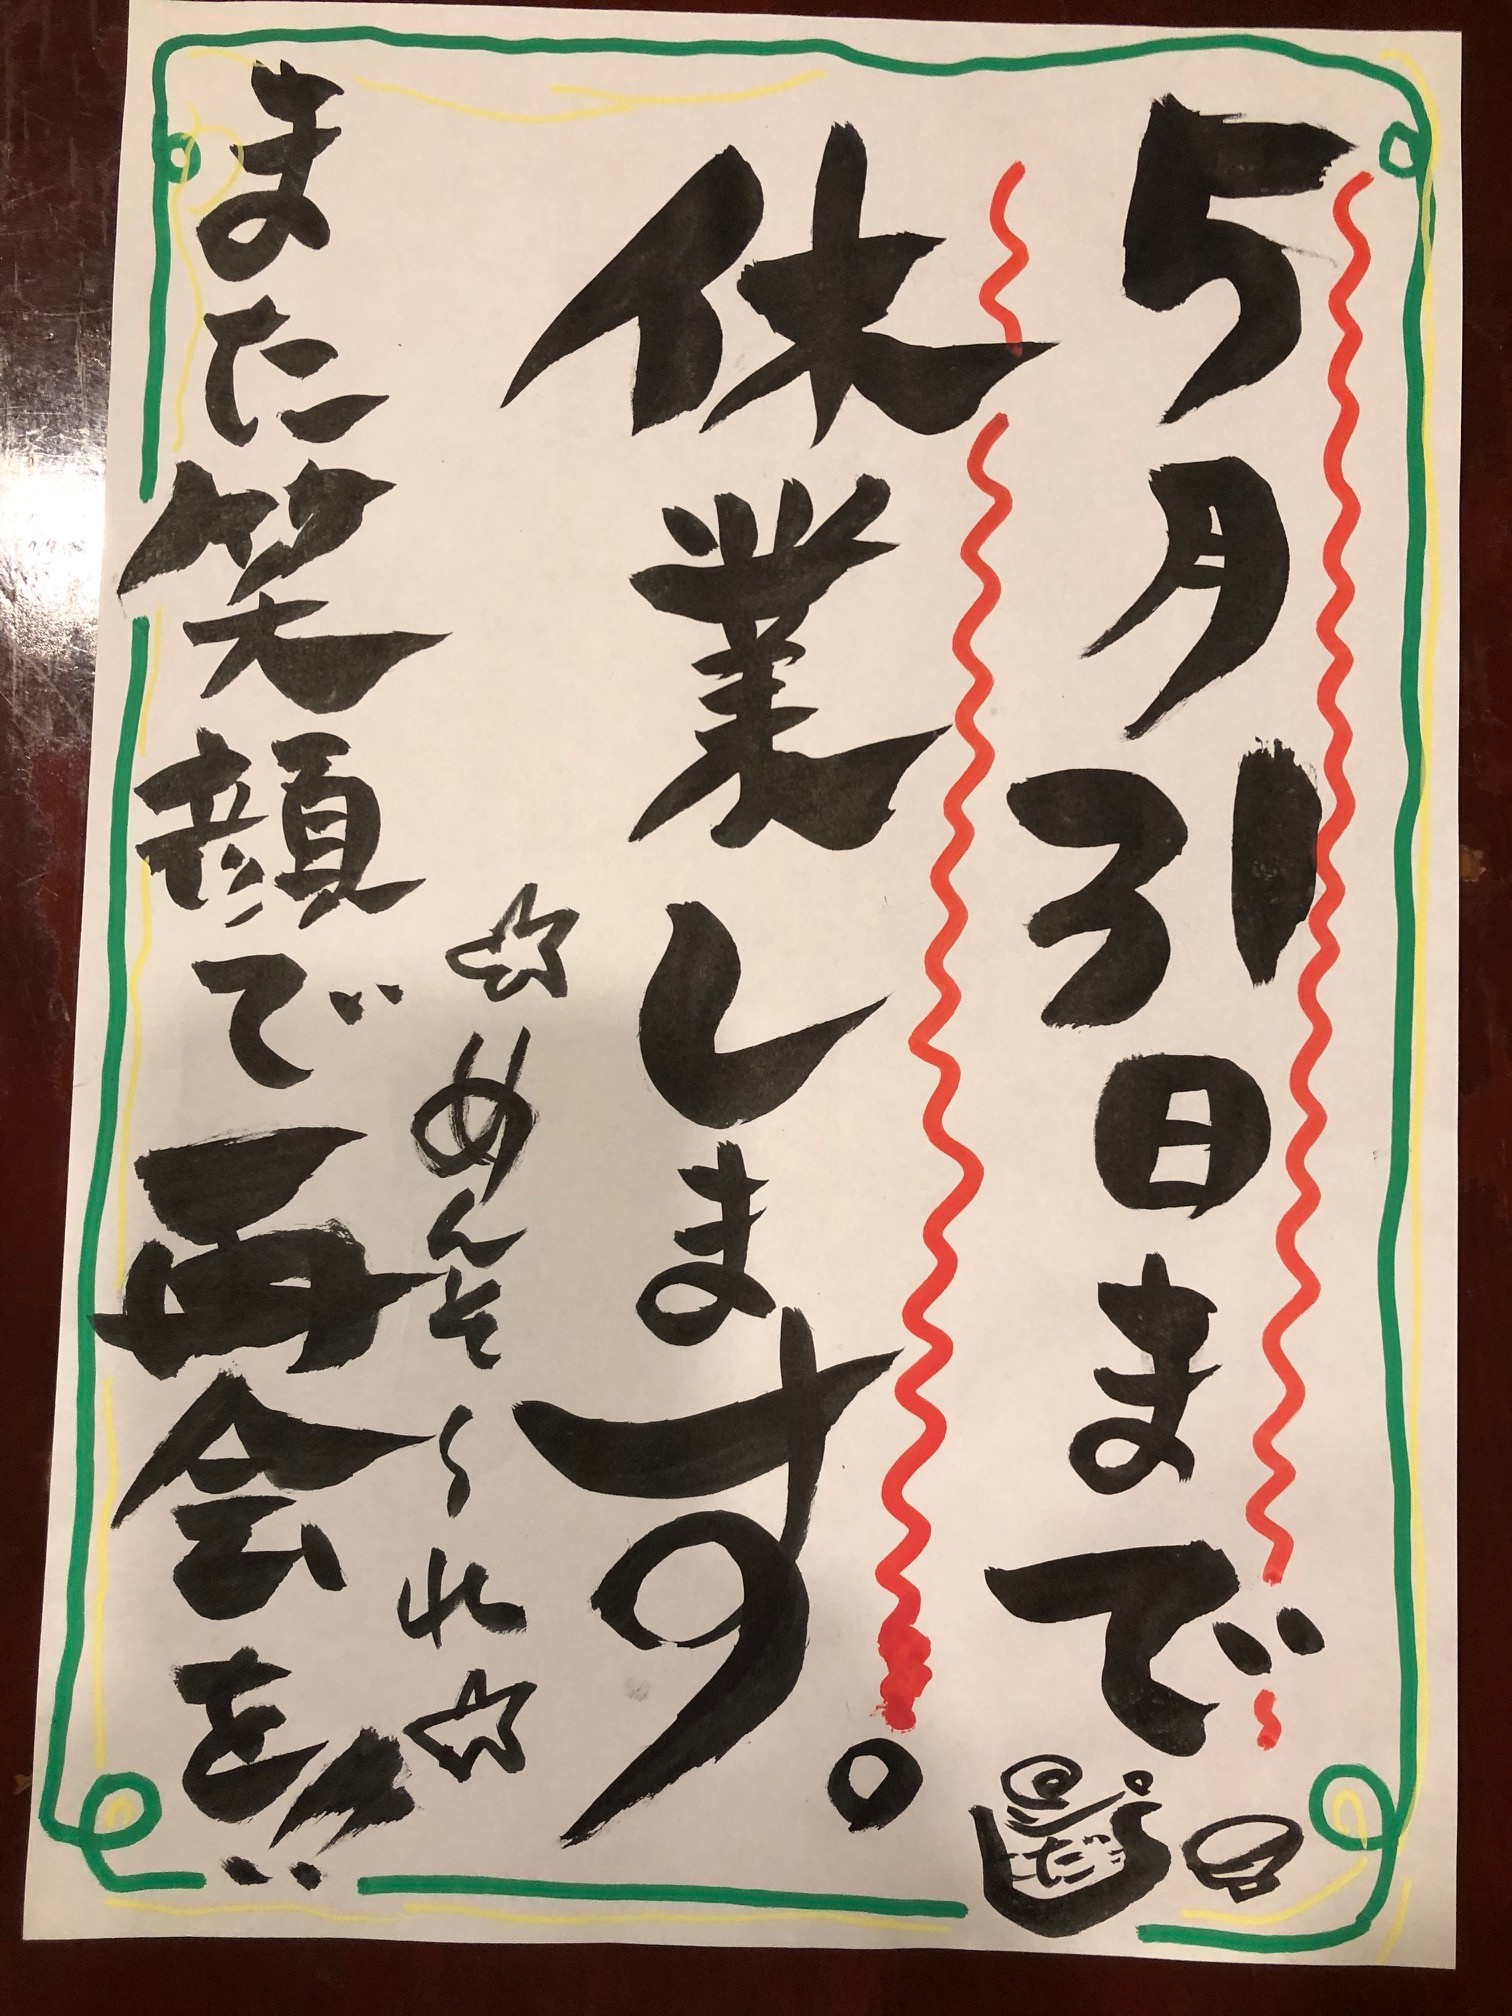 5月31日まで
休業します。
☆めんそ～れ☆
また笑顔で再会を!!